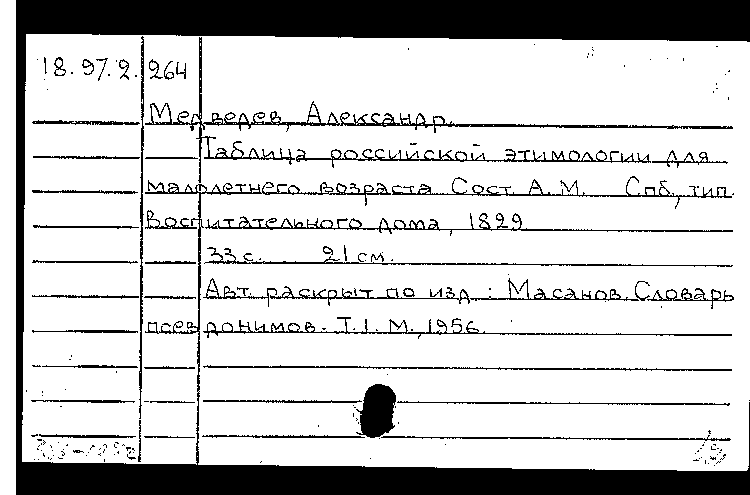 18.97.2.264
Медведев, Александр.
Таблица российской этимологии для
малолетнего возраста Сост. А. М. Спб., тип.
Воспитательного дома, 1829
33 с. 21 см.
Авт. раскрыт по изд.: Масанов. Словарь
псевдонимов. Т. 1. М., 1956.